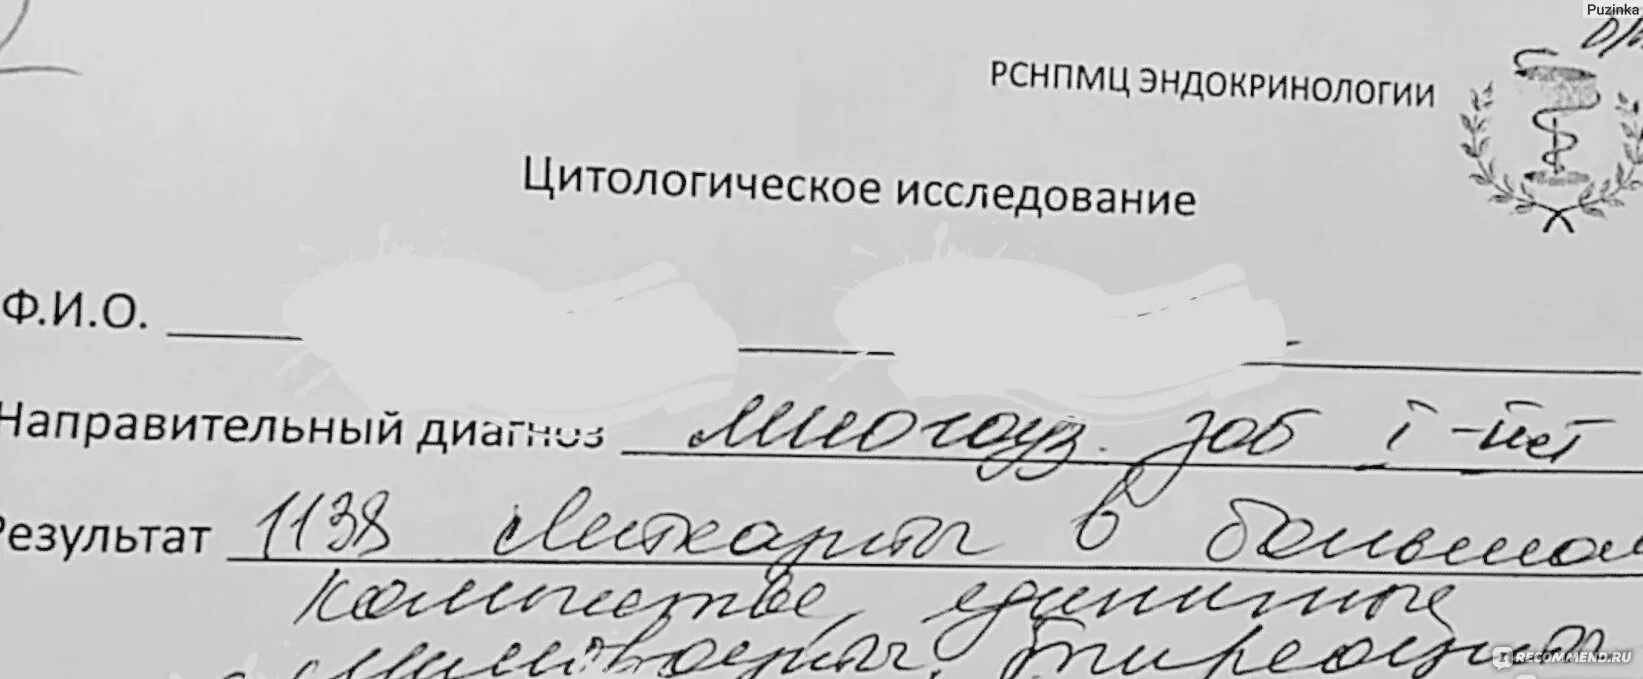 Puzinka
РСНПМЦ ЭНДОКРИНОЛОГИИ
Цитологическое исследование
Ф.И.О.
Направительный диагноз многоуз. зоб I-
Результат 1138 в большом
количестве, единичные
тиреоциты
RECOMMEND.RU